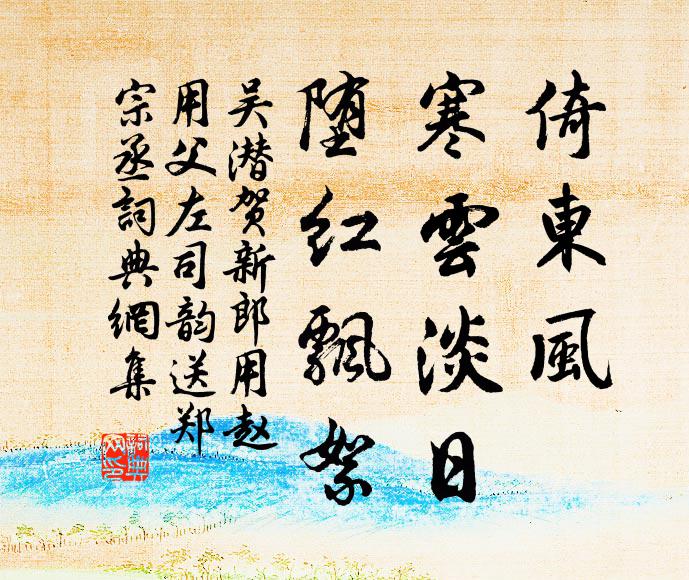 倚東風
寒雲淡日
堕红飄絮
吴潜贺新郎用赵
用父左司韵送郑
宗丞詞典網集